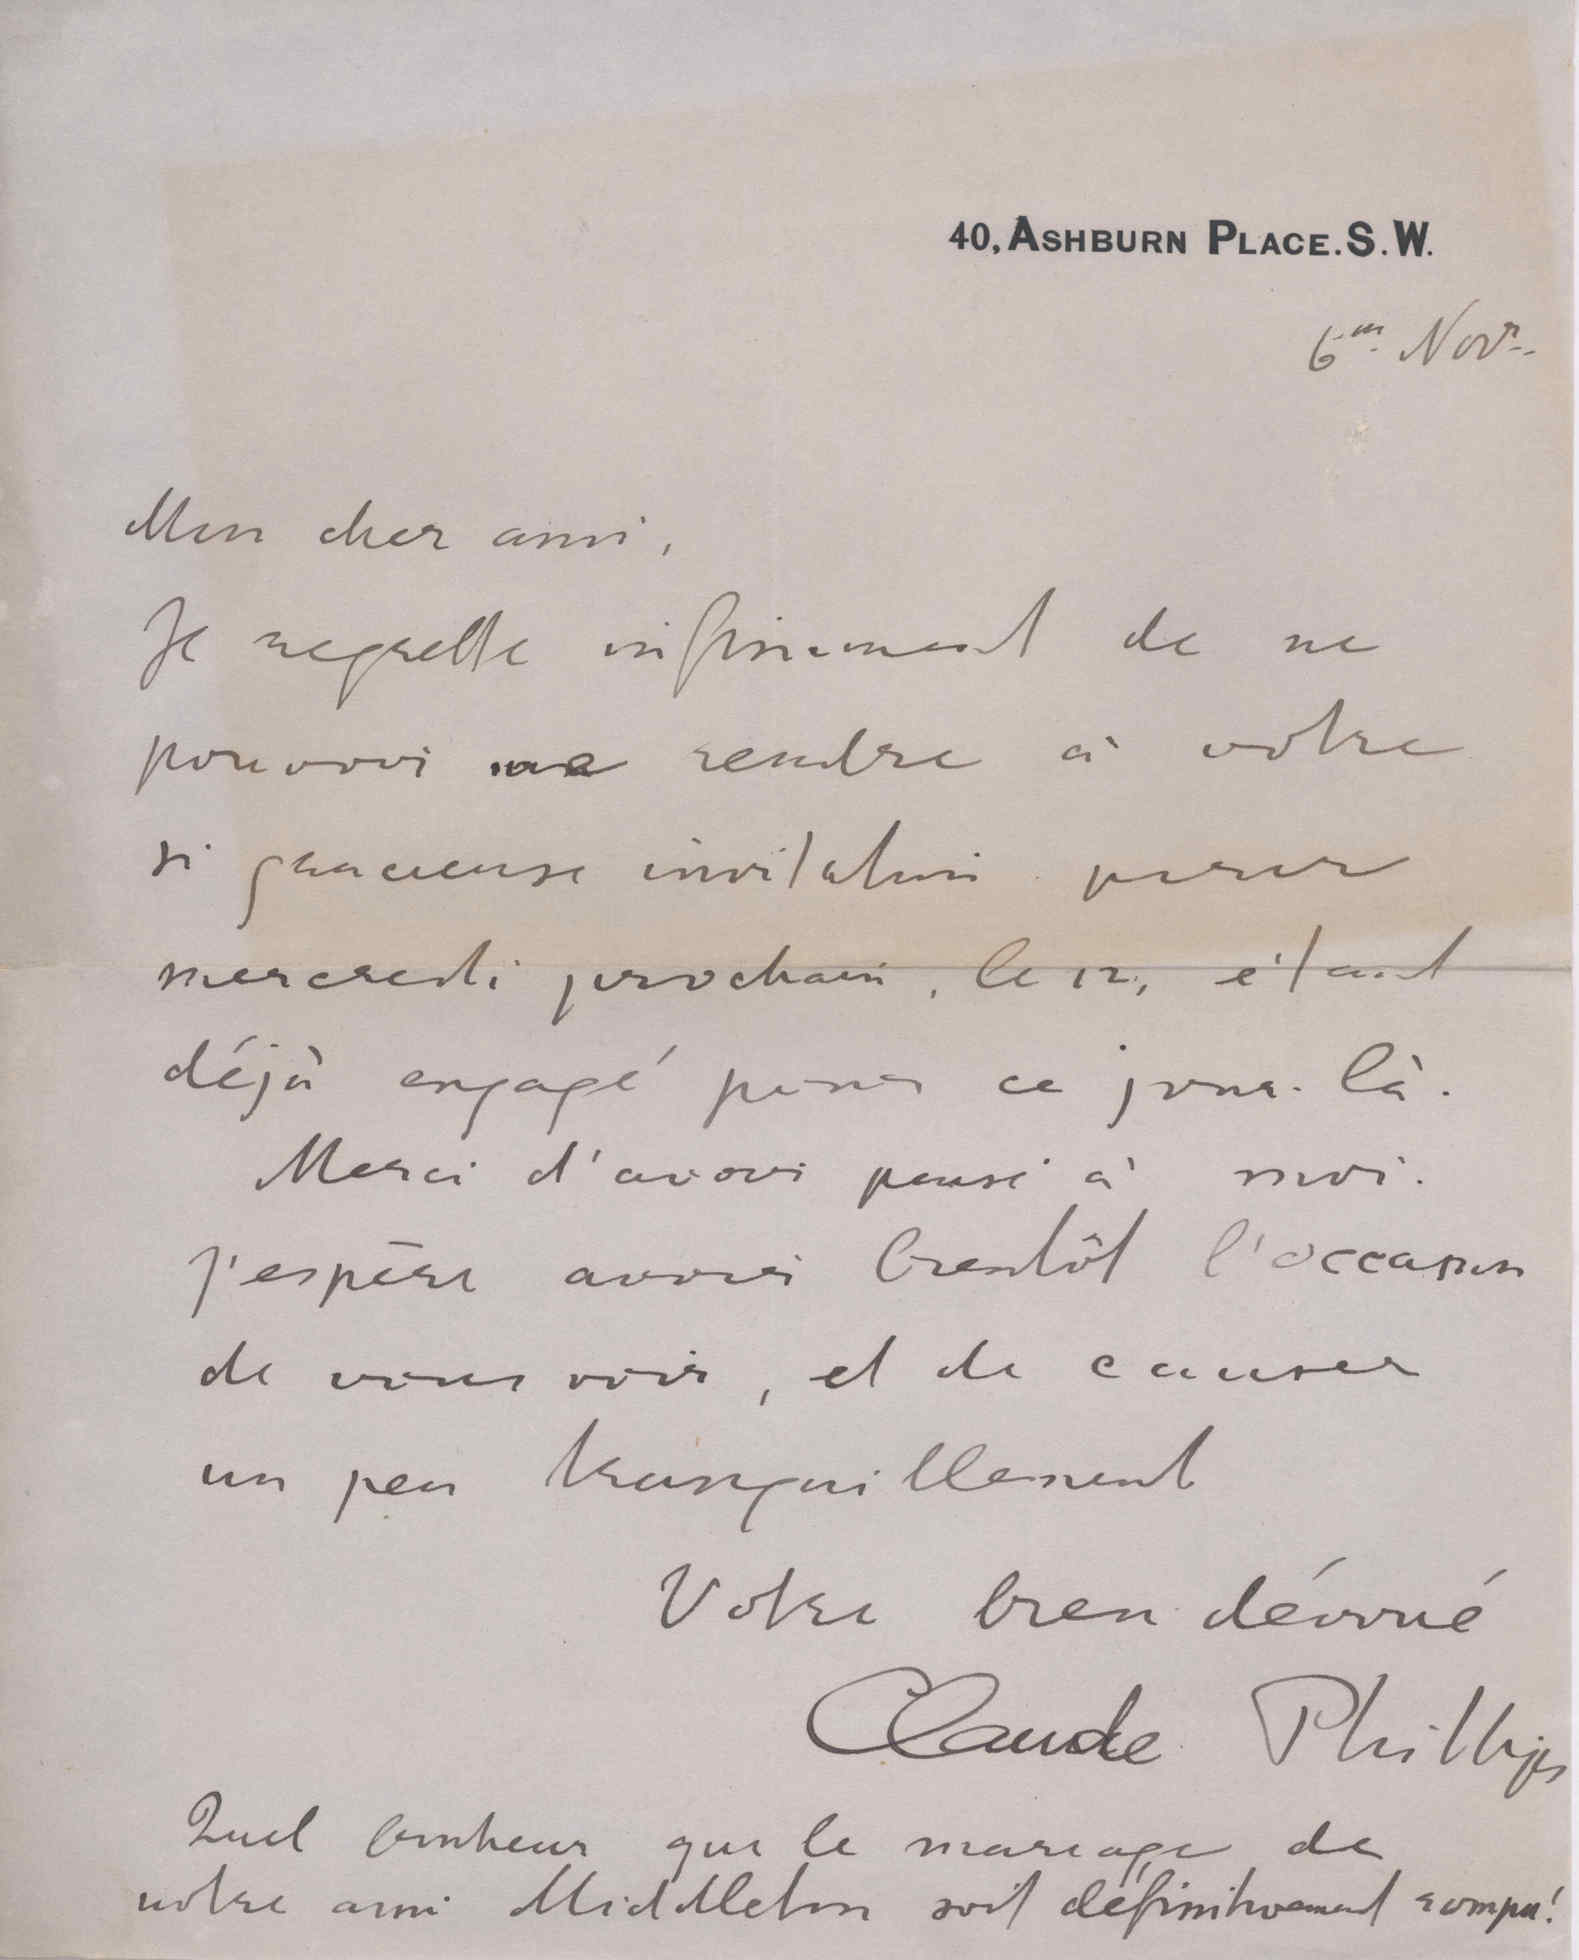 40, ASHBURN PLACE. S. W.
6m. Novr.
Mon cher ami,
Je regrette infiniment de ne
pouvoir me rendre à votre
si gracieuse invitation pour
mercredi prochain, le 12, étant
déjà engagé pour ce jour-là.
Merci d'avoir pensé à moi.
J'espère avoir bientôt l'occasion
de vous voir, et de causer
un peu tranquillement
Votre bien dévoué
Claude Phillips
Quel bonheur que le mariage de
notre ami Middleton soit définitivement rompu!